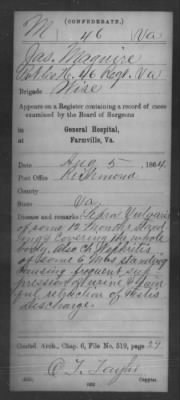 (CONFEDERATE.)
M 46 Va
Jas. Maguire
Pvt Co H, 46 Regt. Va
Brigade Wise
Appears on a Register containing a record of cases
examined by the Board of Surgeons
in
General Hospital,
Farmville, Va.
Date Aug 5, 1864.
Post Office Richmond
County
State Va
Disease and remarks: Lepra Vulgaris
of some 12 Months stand
ing & covering the whole
body. Also Ch. Nephritis
of some 6 Mos standing
causing frequent sup
pression of urine & pain
ful retraction of testis
Discharge.
Confed. Arch., Chap. 6, File No. 519, page 27
Copyist.